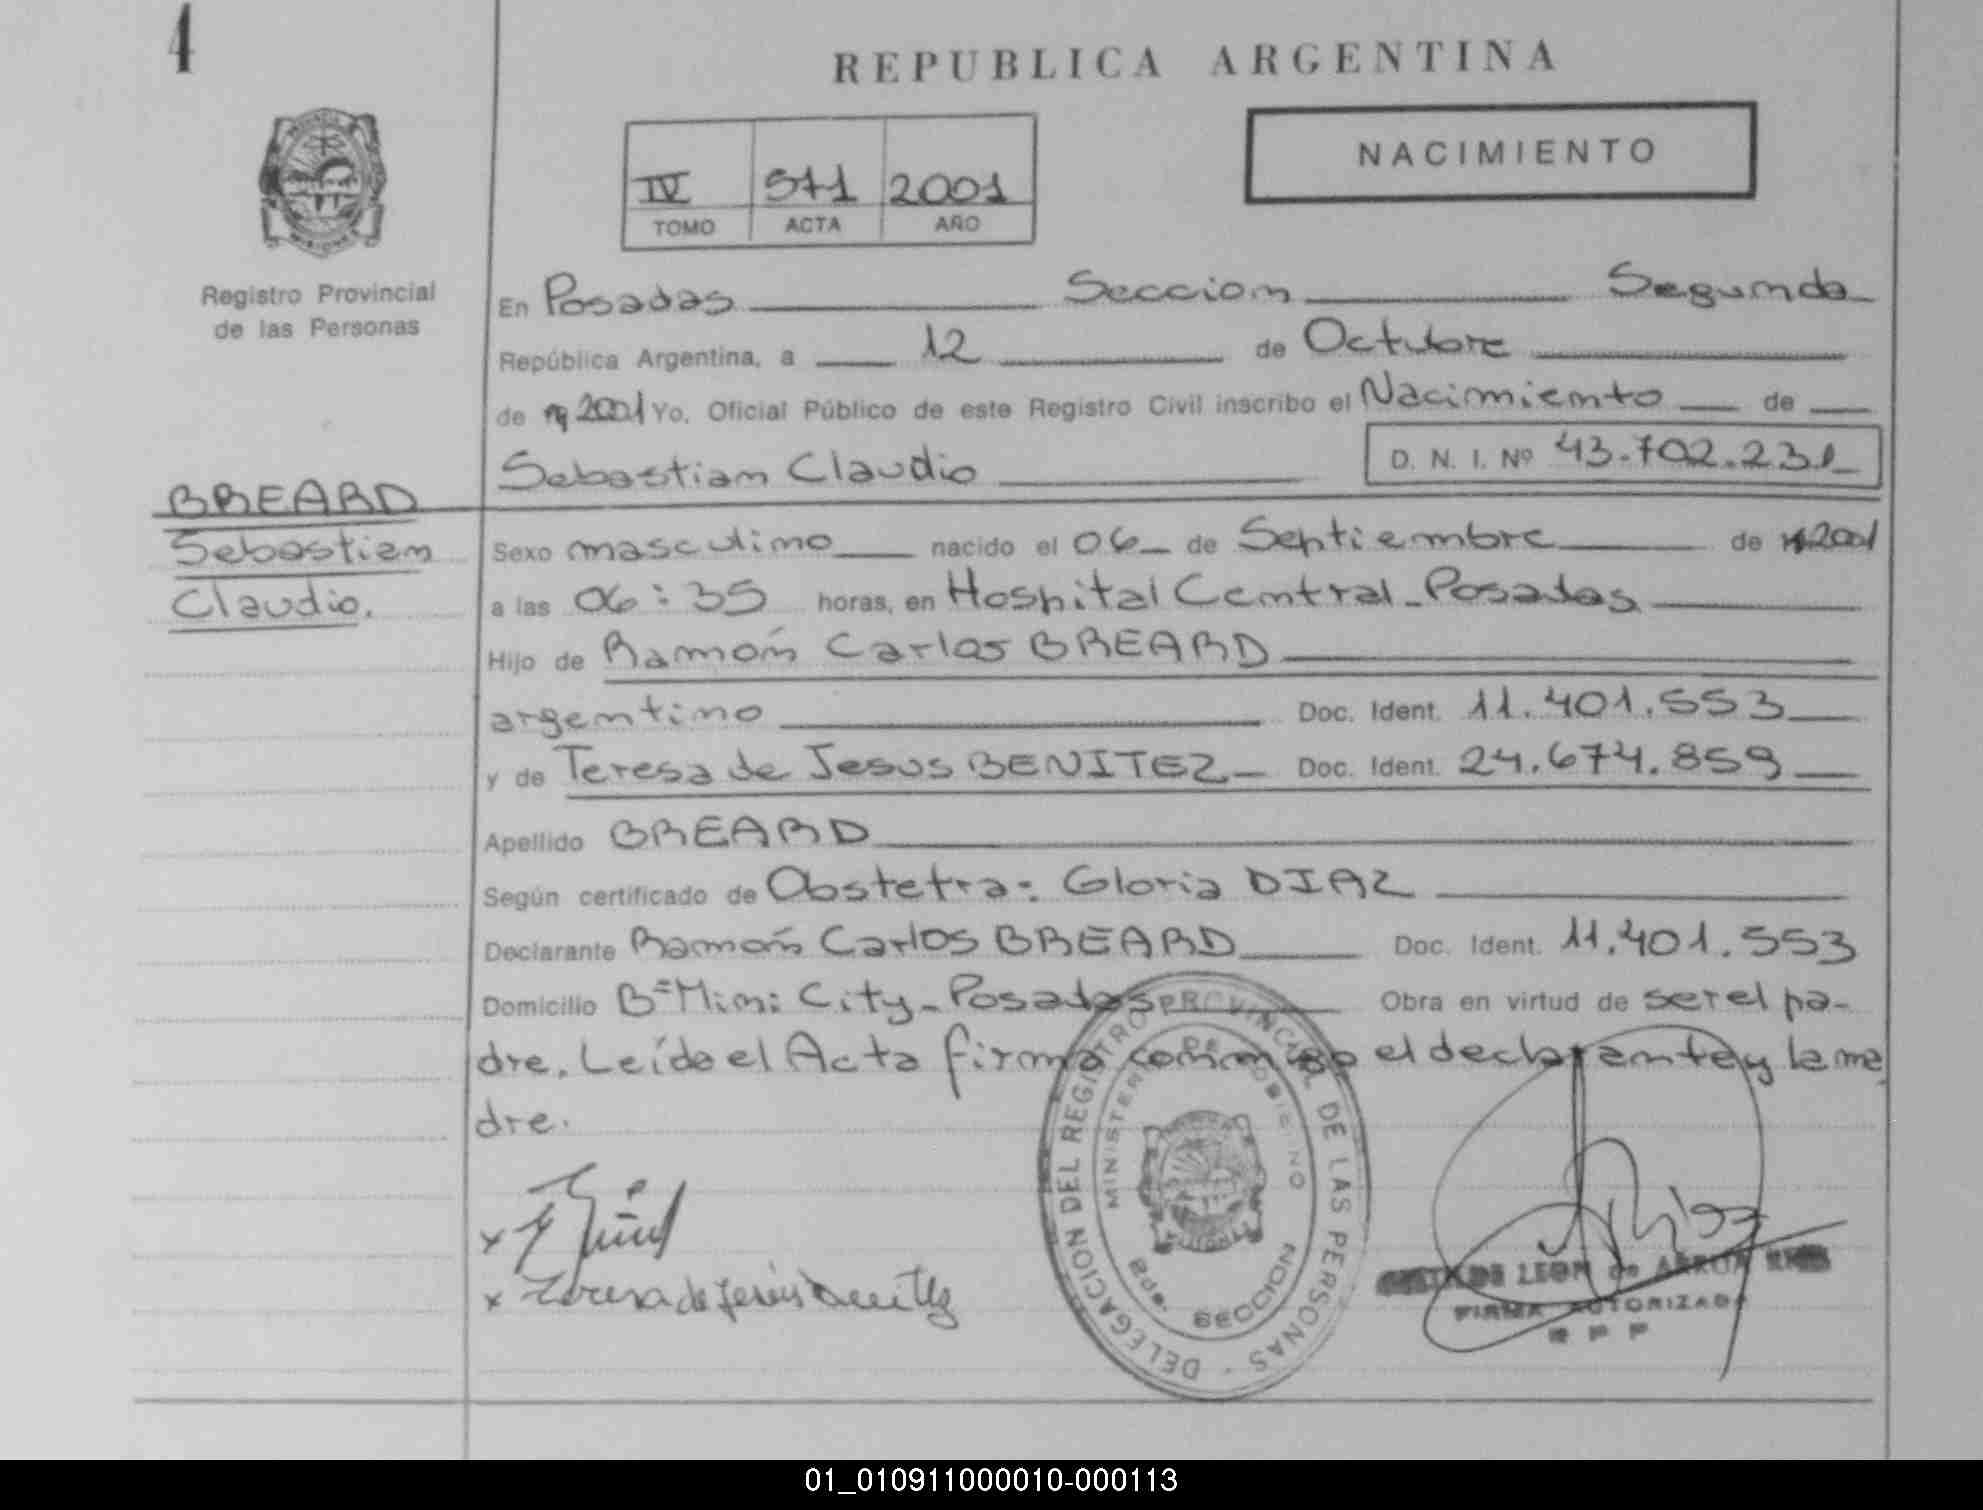 4
REPUBLICA ARGENTINA
NACIMIENTO
IV 571 2001
TOMO ACTA AÑO
Registro Provincial
de las Personas
En Posadas Seccion Segunda
República Argentina, a 12 de Octubre
de 2001 Yo, Oficial Público de este Registro Civil inscribo el Nacimiento de
Sebastian Claudio D. N. I. Nº 43.702.231
BREARD
Sebastian
Claudio.
Sexo masculino nacido el 06 de Septiembre de 2001
a las 06:35 horas, en Hospital Central - Posadas
Hijo de Ramón Carlos BREARD
argentino Doc. Ident. 11.401.553
y de Teresa de Jesus BENITEZ Doc. Ident. 24.674.859
Apellido BREARD
Según certificado de Obstetra: Gloria DIAZ
Declarante Ramón Carlos BREARD Doc. Ident. 11.401.553
Domicilio Bº Mini City - Posadas Obra en virtud de ser el pa-
dre. Leída el Acta firma conmigo el declarante y la ma
dre.
x
x Teresa de Jesús Benitez
DELEGACION DEL REGISTRO PROVINCIAL DE LAS PERSONAS
MINISTERIO DE GOBIERNO
SECCION 2da.
DE LEON de
FIRMA AUTORIZADA
R P P
01_010911000010-000113